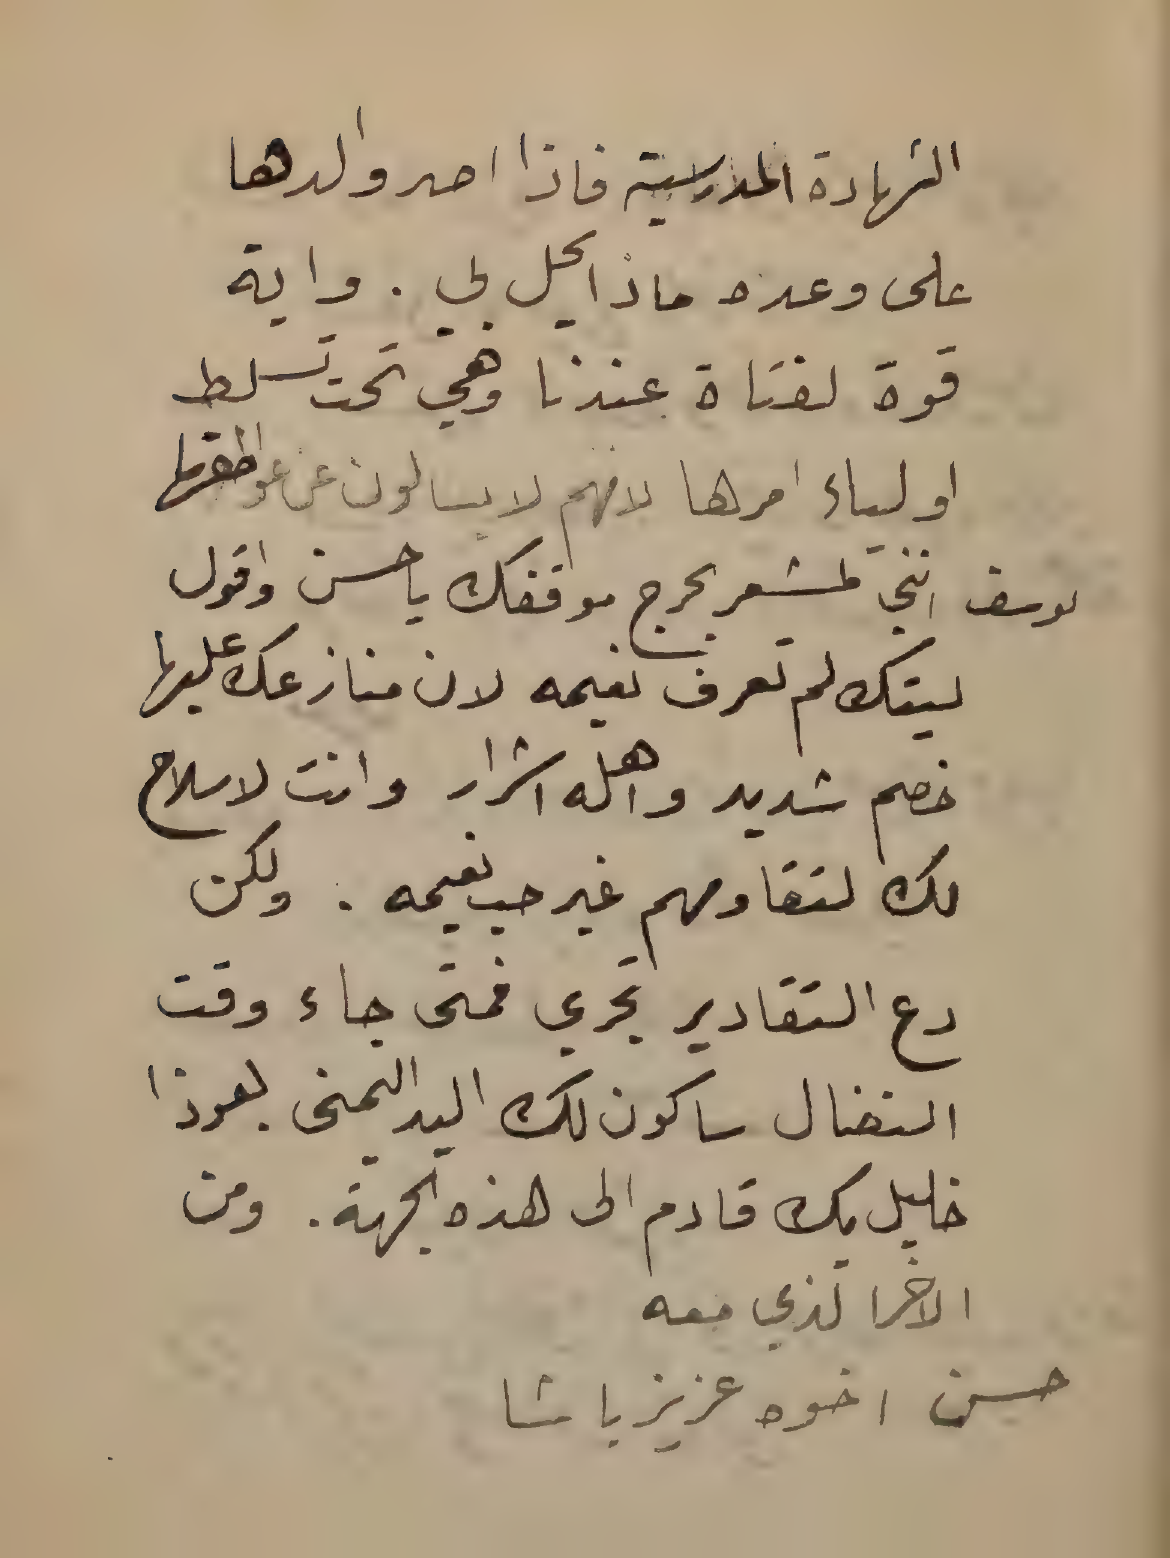 الشهادة المدرسية فاذا اصر والدها
على وعده ماذا يحل بي . واية
قوة لفتاة عندنا وهي تحت تسلط
اولياء امرها لانهم لا يسالون عن عواطفها
يوسف انني لمستشعر بحرج موقفك يا حسن واقول
ليتك لم تعرف نعيمه لان منازعك عليها
خصم شديد واهله اشرار وانت لا سلاح
لك لتقاومهم غير حب نعيمه . ولكن
دع التقادير تجري فمتى جاء وقت
النضال ساكون لك اليد اليمنى . هوذا
خليل بك قادم الى هذه الجهة . ومن
الاخر الذي معه
حسن اخوه عزيز باشا